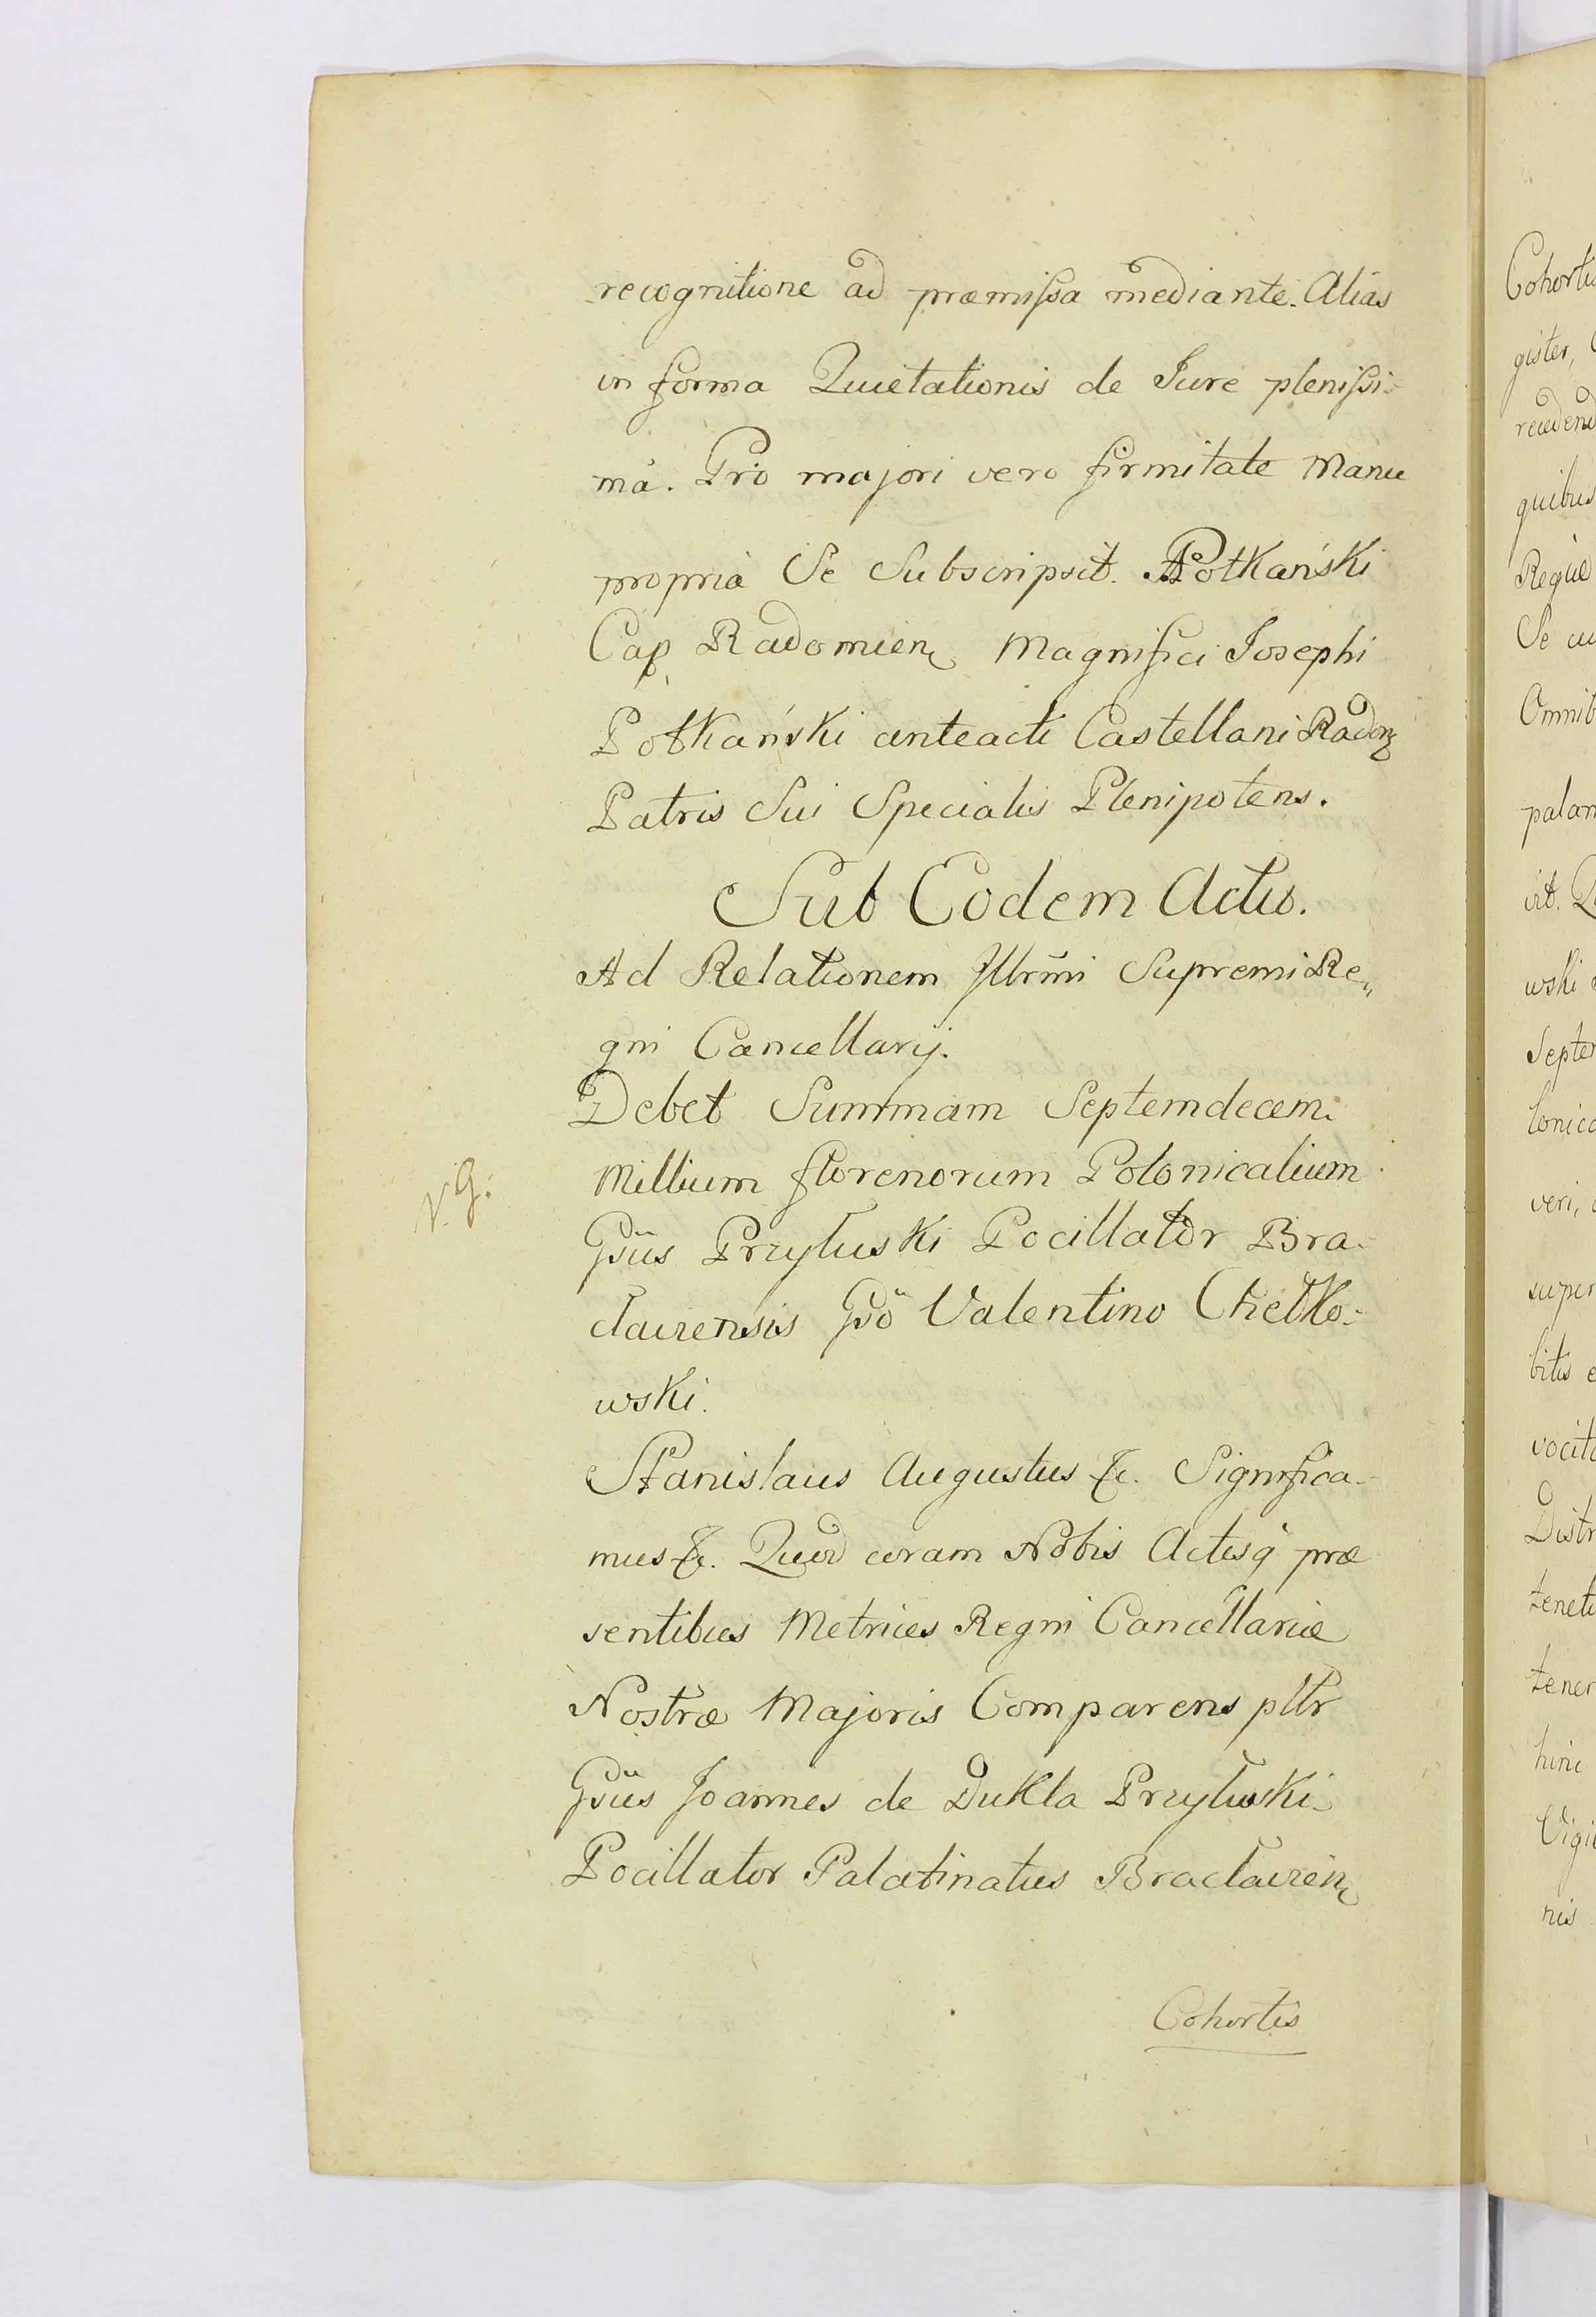 recognitione ad præmissa mediante. Alias
in forma Quietationis de Jure plenissi-
mâ. Pro majori vero firmitate Manu
propriâ Se Subscripsit. APotkański
Cap. Radomien. Magnifici Josephi
Potkański anteacti Castellani Radom.
Patris Sui Specialis Plenipotens.
Sub Eodem Actu.
Ad Relationem Illrm̃i Supremi Re„
gni Cancellarij.
Debet Summam Septemdecem
Millium florenorum Polonicalium
N. G:
Gsũs Przyłuski Pocillator Bra-
clavensis Gsõ Valentino Chełko-
wski.
Stanislaus Augustus &c. Significa-
mus &c. Quod coram Nobis Actisq́ præ
sentibus Metrices Regni Cancellariæ
Nostræ Majoris Comparens pltr
Gsũs Joannes de Dukla Przyłuski
Pocillator Palatinatus Braclavien.
Cohortis
gister,
quibus
Se
veri,
super
hinc
nis